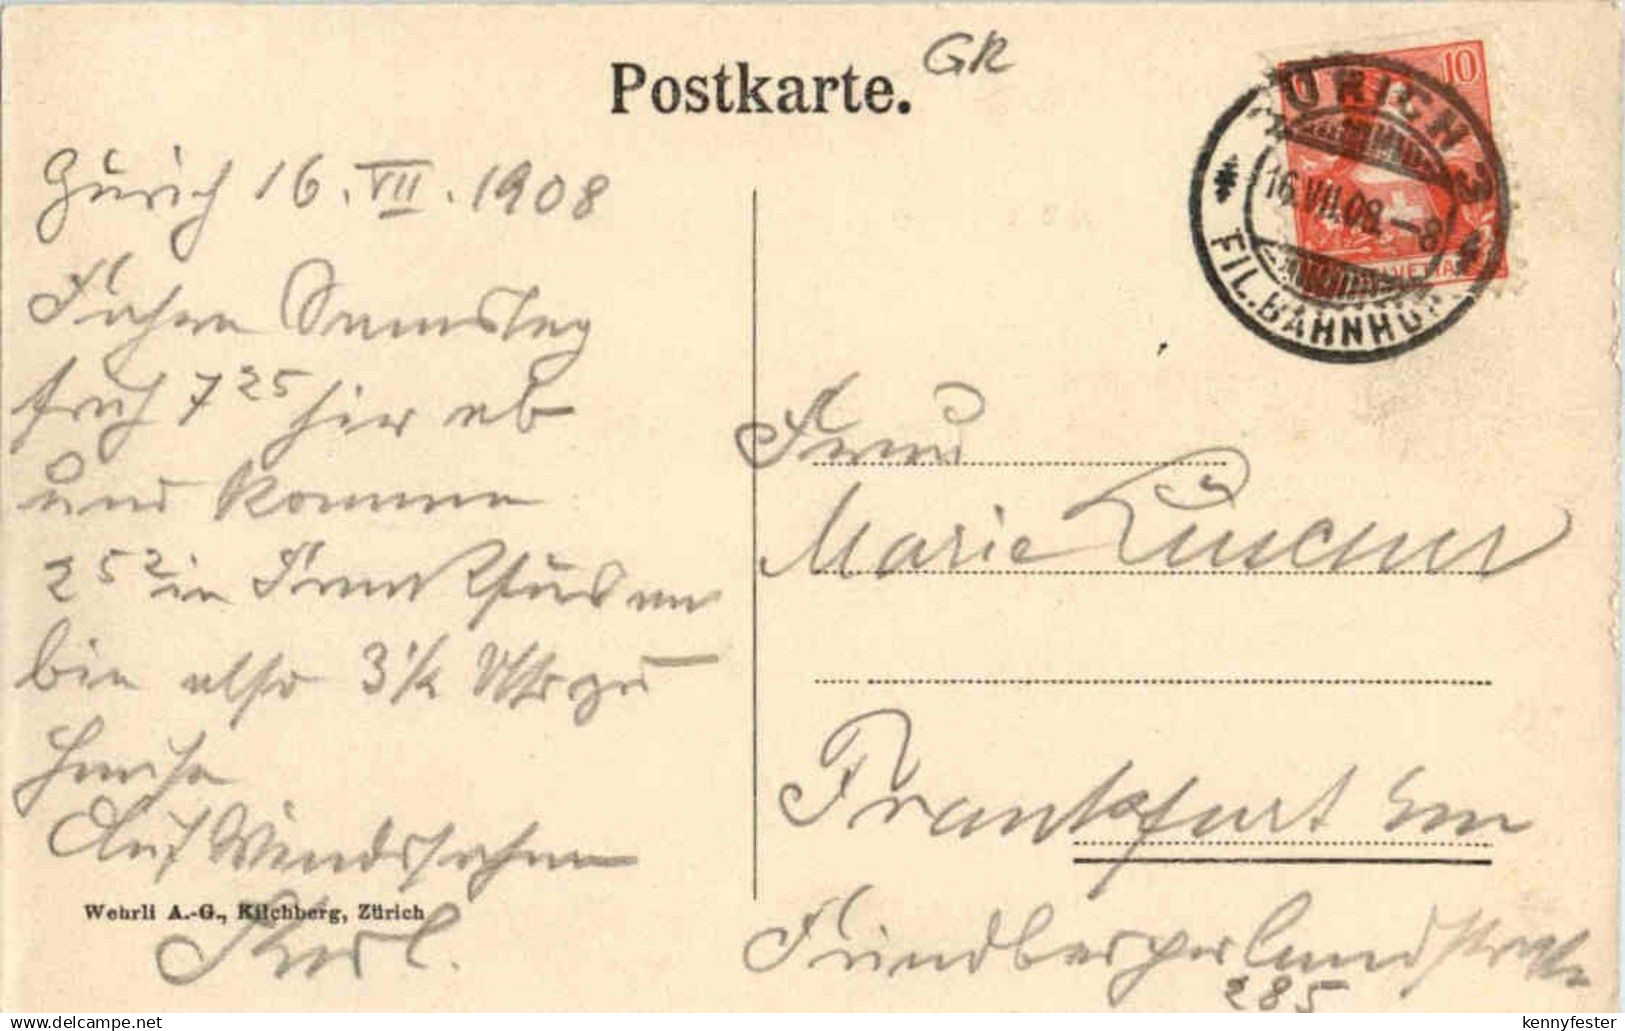 Postkarte.
GR
ZÜRICH 3
16.VII.08.-8
FIL. BAHNHOF
10
HELVETIA
Zürich 16. VII. 1908
Fahre Samstag
früh 7 25 hier ab
und komme
2 52 in Frankfurt an
bin also 3 1/2 Uhr zu
Hause
Auf Wiedersehen
Karl.
Wehrli A.-G., Kilchberg, Zürich
Frau
Marie Luscher
Frankfurt a/m
Friedbergerlandstraße
285
kennyfester